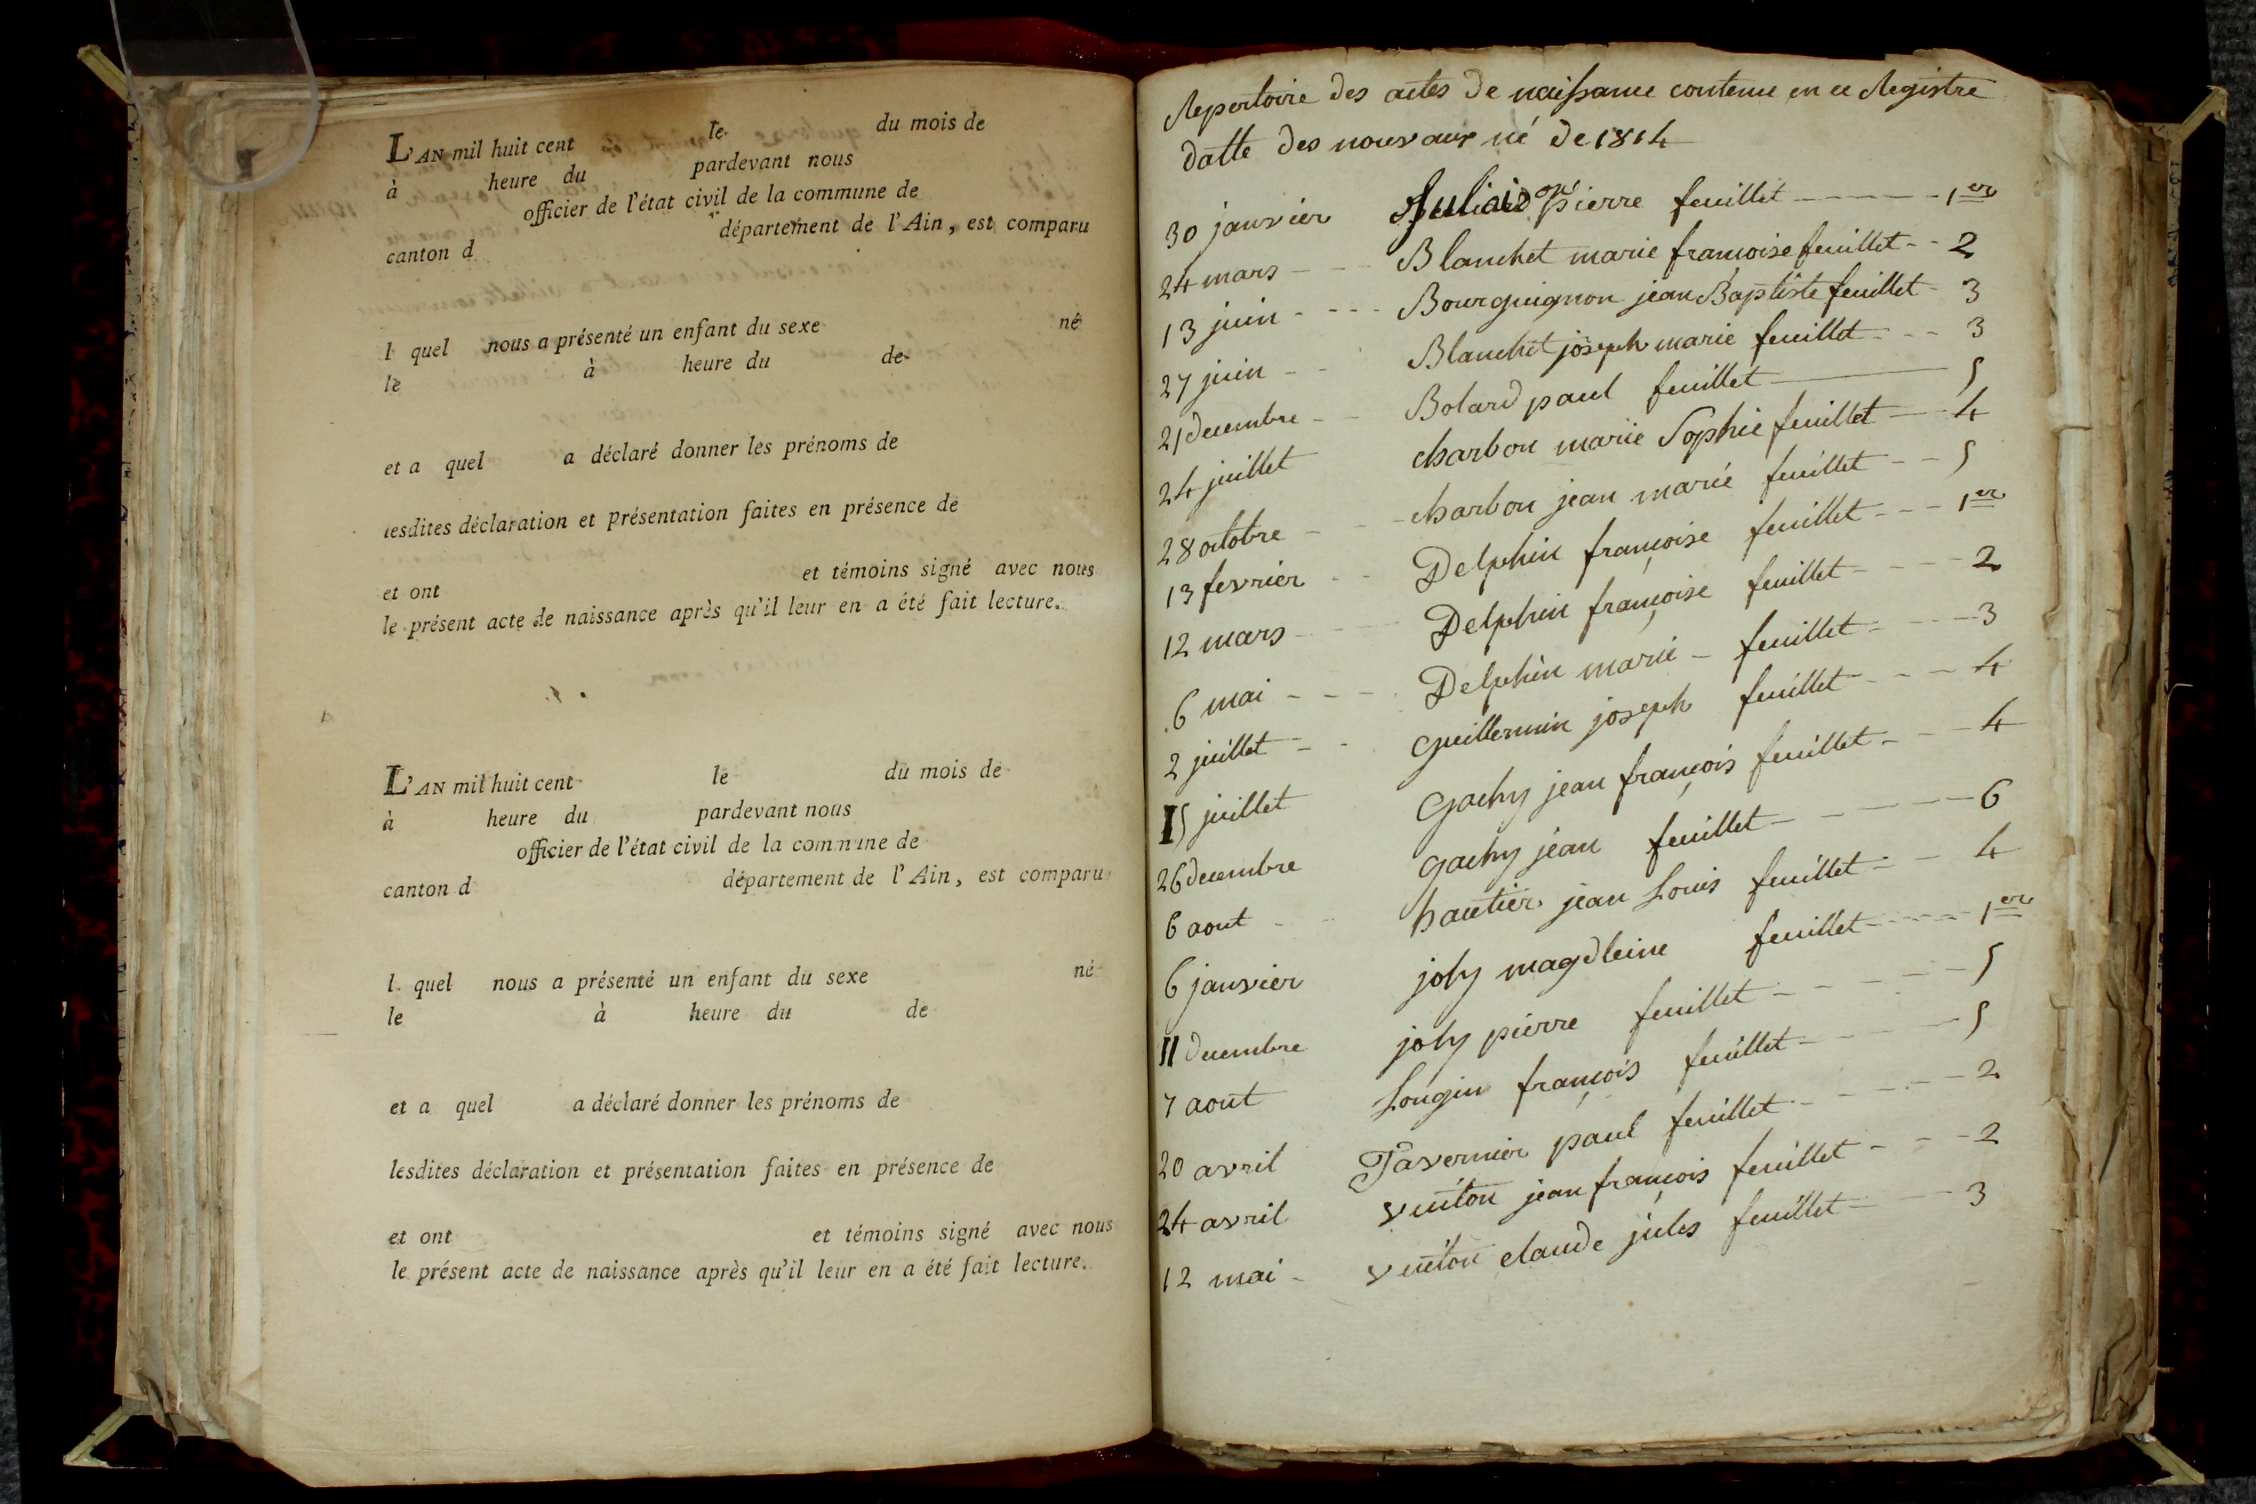 L'AN mil huit cent le du mois de
à heure du pardevant nous
officier de l'état civil de la commune de
canton d département de l'Ain, est comparu
l quel nous a présenté un enfant du sexe né
le à heure du de
et a quel a déclaré donner les prénoms de
lesdites déclaration et présentation faites en présence de
et ont et témoins signé avec nous
le présent acte de naissance après qu'il leur en a été fait lecture.
L'AN mil huit cent le du mois de
à heure du pardevant nous
officier de l'état civil de la commune de
canton d département de l'Ain, est comparu
l quel nous a présenté un enfant du sexe né
le à heure du de
et a quel a déclaré donner les prénoms de
lesdites déclaration et présentation faites en présence de
et ont et témoins signé avec nous
le présent acte de naissance après qu'il leur en a été fait lecture.
Repertoire des actes de naissance contenu en ce Registre
datte des nouvaux né de 1814
30 janvier Pierre feuillet 1er
24 mars Blanchet marie françoise feuillet 2
13 juin Bourguignon jean Baptiste feuillet 3
27 juin Blanchet joseph marie feuillet 3
21 decembre Bolard paul feuillet 5
24 juillet charbon marie Sophie feuillet 4
28 octobre charbon jean marie feuillet 5
13 fevrier Delphin françoise feuillet 1er
12 mars Delphin françoise feuillet 2
6 mai Delphin marie feuillet 3
2 juillet guillermin joseph feuillet 4
15 juillet gachy jean françois feuillet 4
26 decembre gachy jean feuillet 6
6 aout hautier jean Louis feuillet 4
6 janvier joly magdleine feuillet 1er
11 decembre joly pierre feuillet 5
7 aout Longin françois feuillet 5
20 avril Tavernier paul feuillet 2
24 avril vuiton jean françois feuillet 2
12 mai vuiton claude jules feuillet 3